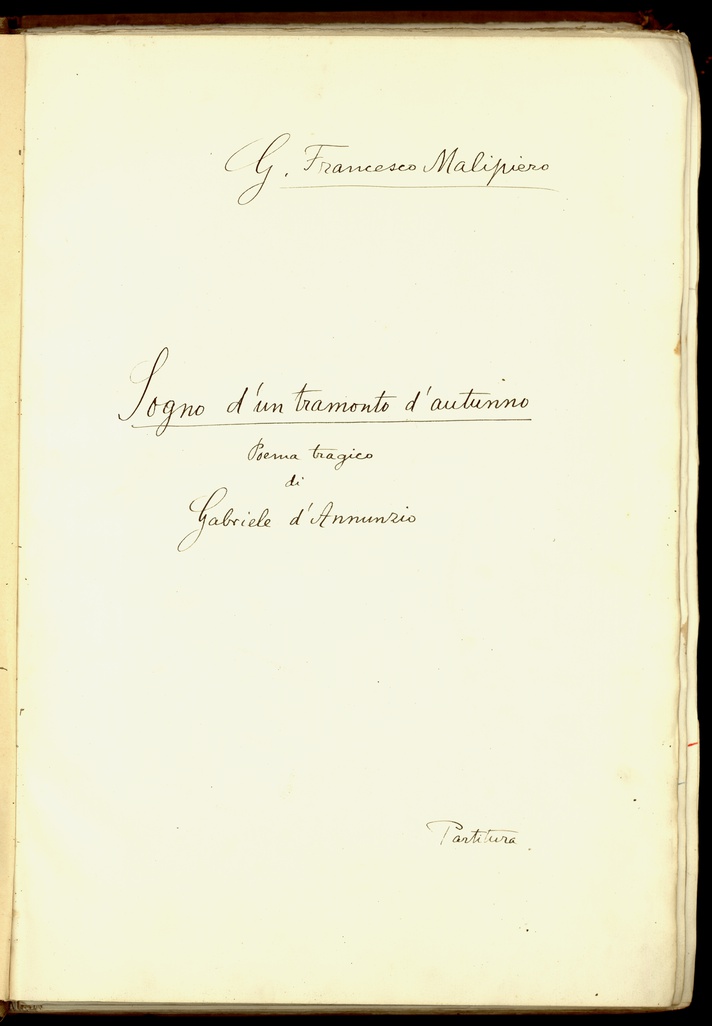 G. Francesco Malipiero
Sogno d'un tramonto d'autunno
Poema tragico
di
Gabriele d'Annunzio
Partitura.